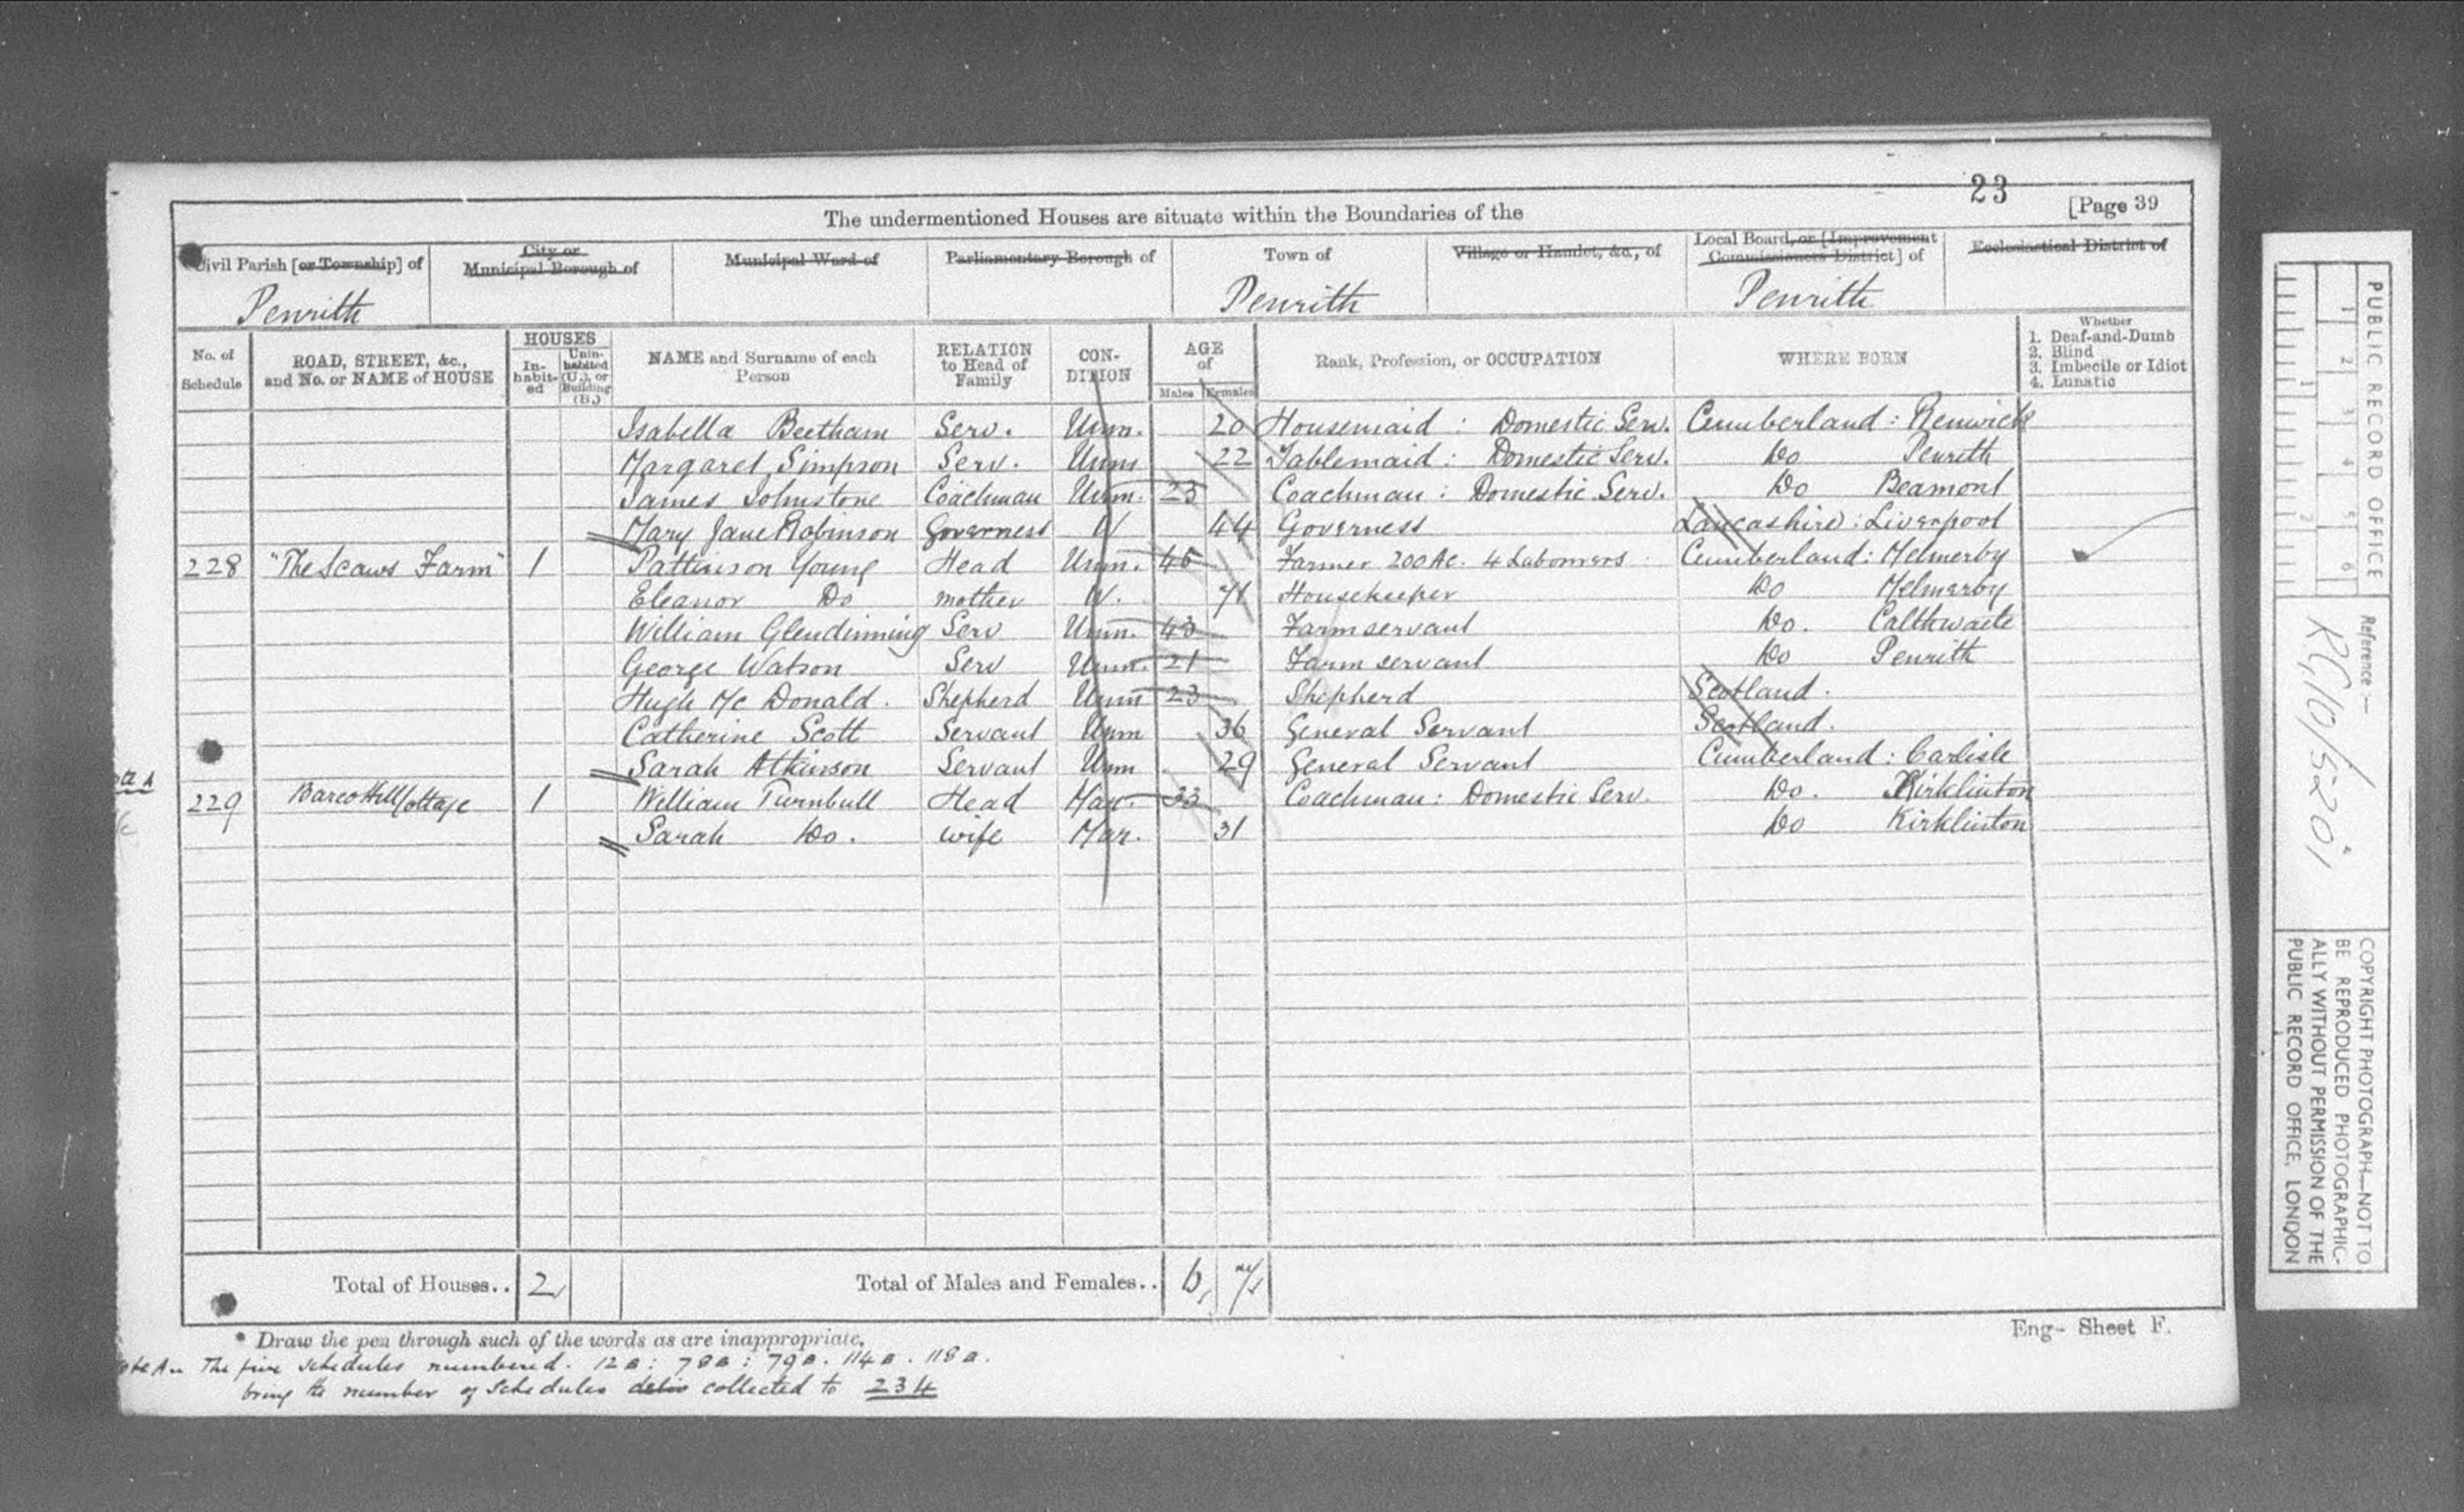 23
[Page 39
The undermentioned Houses are situate within the Boundaries of the
Civil Parish [or Township] of
City or Municipal Borough of
Municipal Ward of
Parliamentary Borough of
Town of
Village or Hamlet, &c., of
Local Board, or [Improvement Commissioners District] of
Ecclesiastical District of
Penrith Penrith Penrith
No. of Schedule
ROAD, STREET, &c., and No. or NAME of HOUSE
HOUSES
In-habit-ed
Unin-habited (U.), or Building (B.)
NAME and Surname of each Person
RELATION to Head of Family
CON-DITION
AGE of
Males Females
Rank, Profession, or OCCUPATION
WHERE BORN
Whether
1. Deaf-and-Dumb
2. Blind
3. Imbecile or Idiot
4. Lunatic
Isabella Beetham Serv. Unm. 20 Housemaid : Domestic Serv. Cumberland : Renwick
Margaret Simpson Serv. Unm 22 Tablemaid : Domestic Serv. Do Penrith
James Johnstone Coachman Unm. 23 Coachman : Domestic Serv. Do Beamont
Mary Jane Robinson Governess W 44 Governess Lancashire : Liverpool
228 "The Scaws Farm" 1 Pattinson Young Head Unm. 45 Farmer 200 Ac. 4 Labourers Cumberland : Melmerby
Eleanor Do mother W. 71 Housekeeper Do Melmerby
William Glendinning Serv Unm. 43 Farm servant Do. Calthwaite
George Watson Serv Unm. 21 Farm servant Do Penrith
Hugh Mc Donald. Shepherd Unm 23 Shepherd Scotland.
Catherine Scott Servant Unm 36 General Servant Scotland.
Sarah Atkinson Servant Unm 29 General Servant Cumberland : Carlisle
229 Barco Hill Cottage 1 William Turnbull Head Mar. 33 Coachman : Domestic Serv. Do. Kirklinton
Sarah Do. wife Mar. 31 Do Kirklinton
Total of Houses.. 2 Total of Males and Females.. 6 7
Eng- Sheet F.
* Draw the pen through such of the words as are inappropriate.
The five schedules numbered. 12a : 78a : 79a. 114a. 118a.
bring the number of schedules collected to 234
PUBLIC RECORD OFFICE
1 2 3 4 5 6
1 2
Reference :—
RG 10/5201
COPYRIGHT PHOTOGRAPH—NOT TO
BE REPRODUCED PHOTOGRAPHIC-
ALLY WITHOUT PERMISSION OF THE
PUBLIC RECORD OFFICE, LONDON